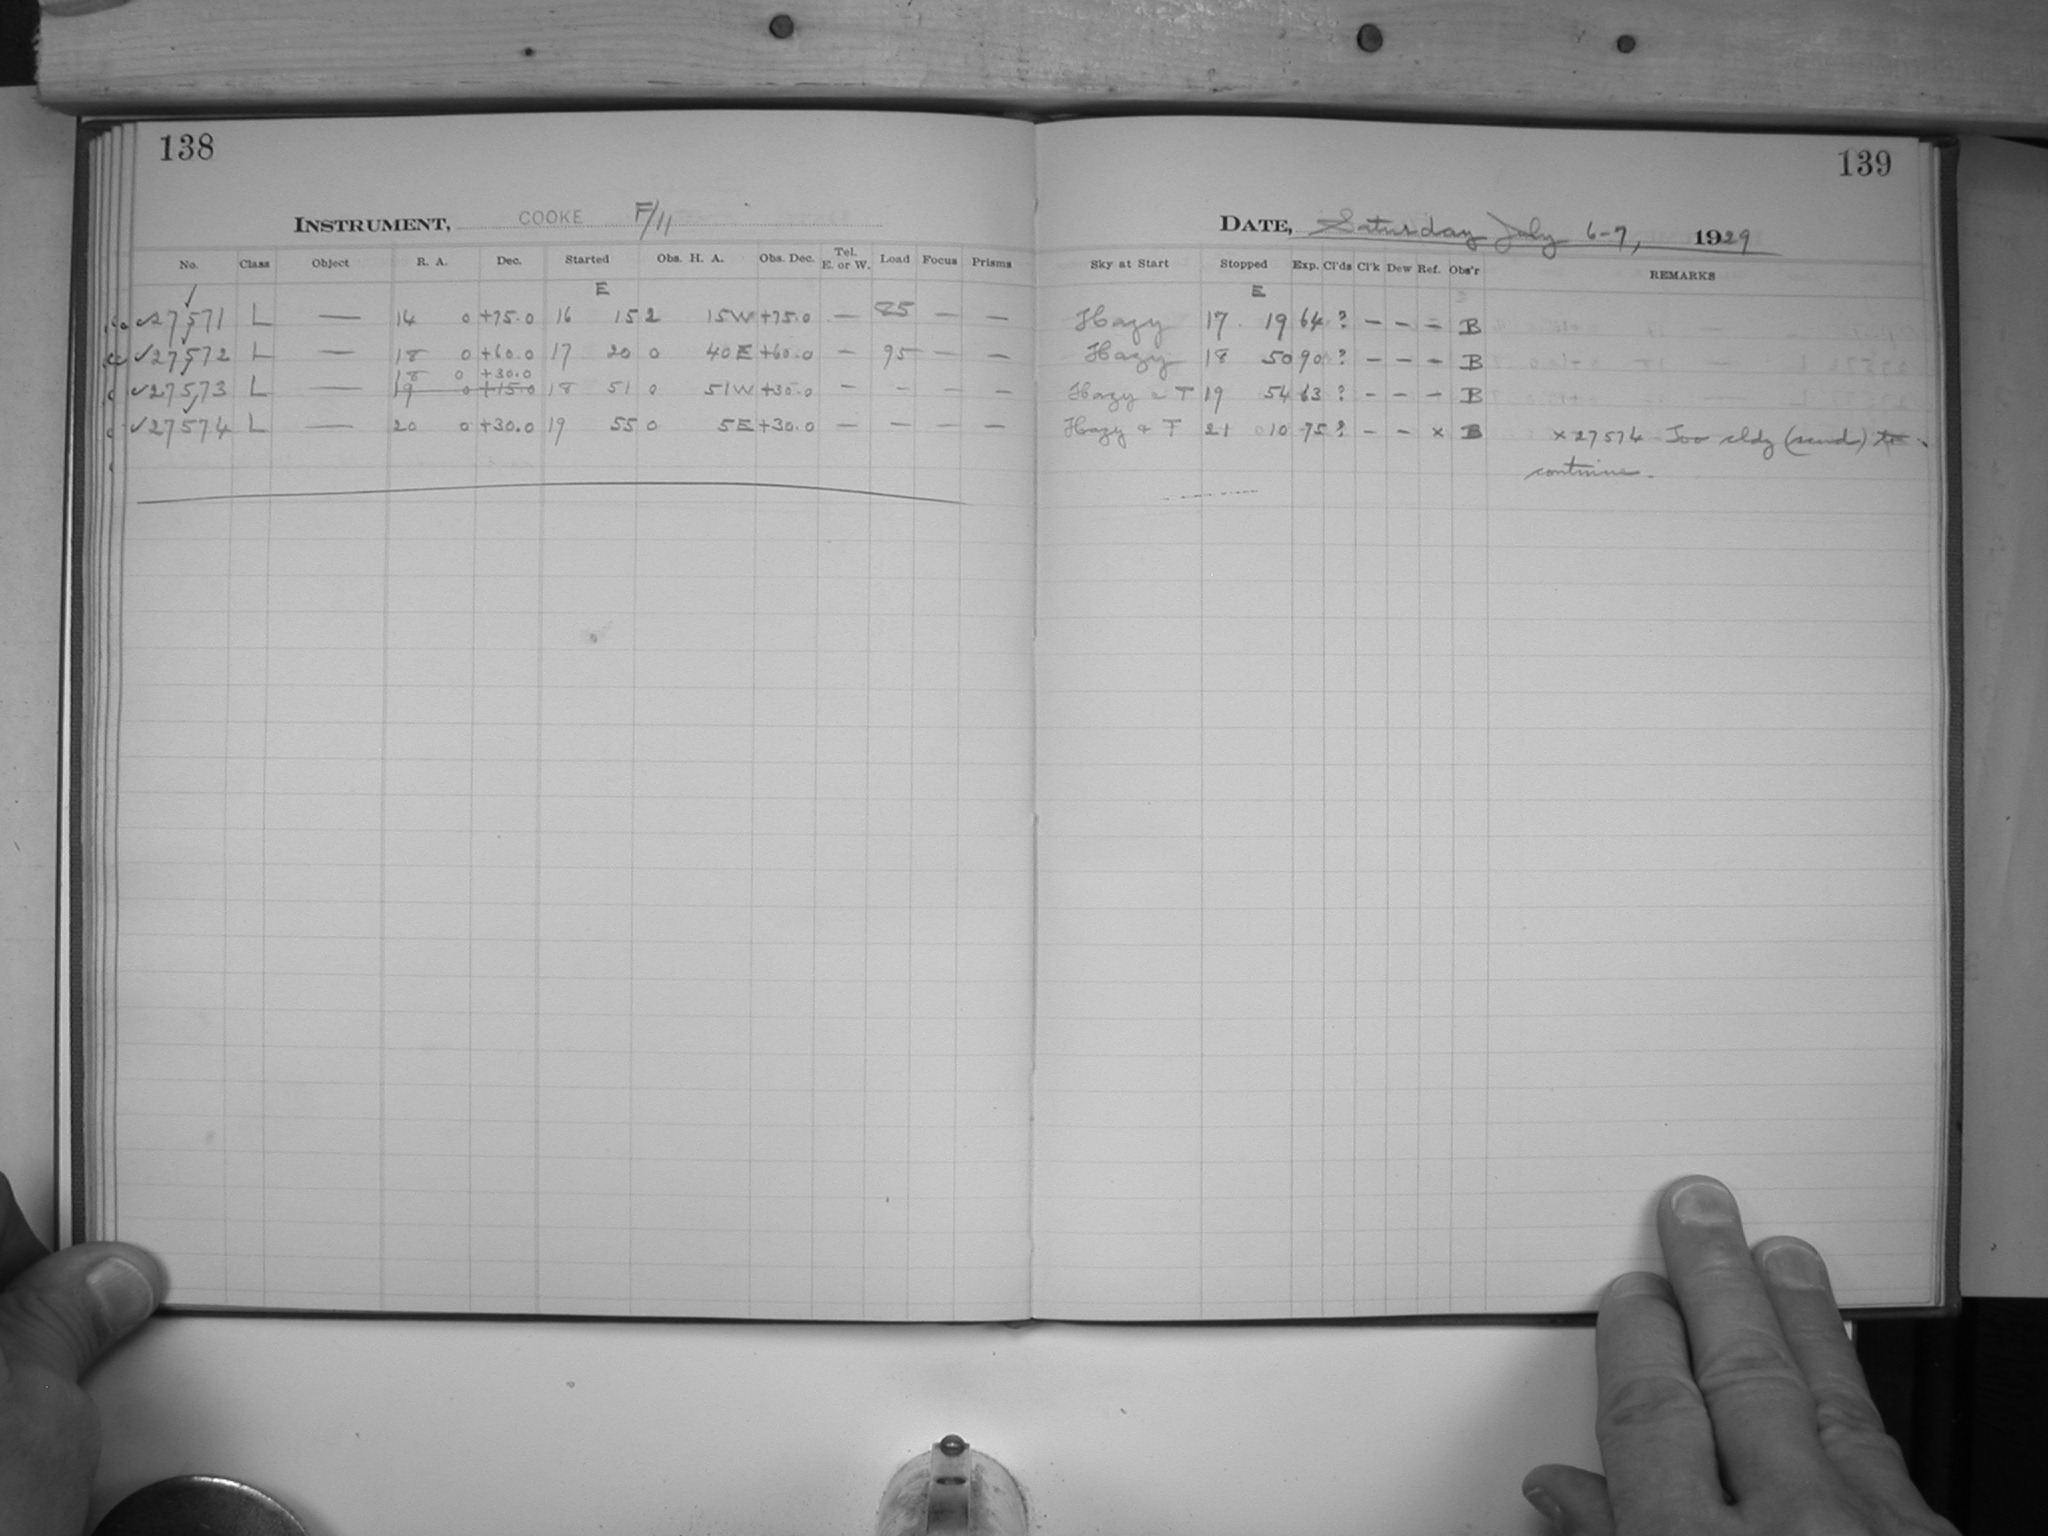 138
139
INSTRUMENT, COOKE F/11
DATE, Saturday July 6-7, 1929
No. Class Object R. A. Dec. Started Obs. H. A. Obs. Dec. Tel. E. or W. Load Focus Prisms Sky at Start Stopped Exp. Cl'ds Cl'k Dew Ref. Obs'r REMARKS
E E
27571 L — 14 0 +75.0 16 15 2 15W +75.0 — 85 — — Hazy 17 19 64 ? — — — B
✓27572 L — 18 0 +60.0 17 20 0 40E +60.0 — 95 — — Hazy 18 50 90 ? — — — B
18 0 +30.0
✓27573 L — 19 0 +15.0 18 51 0 51W +30.0 — — — — Hazy & T 19 54 63 ? — — — B
✓27574 L — 20 0 +30.0 19 55 0 5E +30.0 — — — — Hazy & T 21 10 75 ? — — × B × 27574 Too cldy (scuds) to
continue.